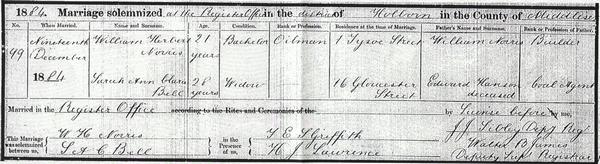 1884. Marriage solemnized at the Register Office in the district of Holborn in the County of Middlesex
No. When Married. Name and Surname. Age. Condition. Rank or Profession. Residence at the time of Marriage. Father's Name and Surname. Rank or Profession of Father.
99 Nineteenth December 1884 William Herbert Norris 21 years Bachelor Oilman 1 Tysoe Street William Norris Builder
Sarah Ann Clara Bell 28 years Widow 16 Gloucester Street Edward Hanson deceased Coal Agent
Married in the Register Office according to the Rites and Ceremonies of the by License before by me,
This Marriage was solemnized between us, W. H. Norris in the Presence of us, T E S Griffith J J Sibley Depy Regr
S. A. C. Bell H. J. Lawrence Walter B James Deputy Sup Registrar